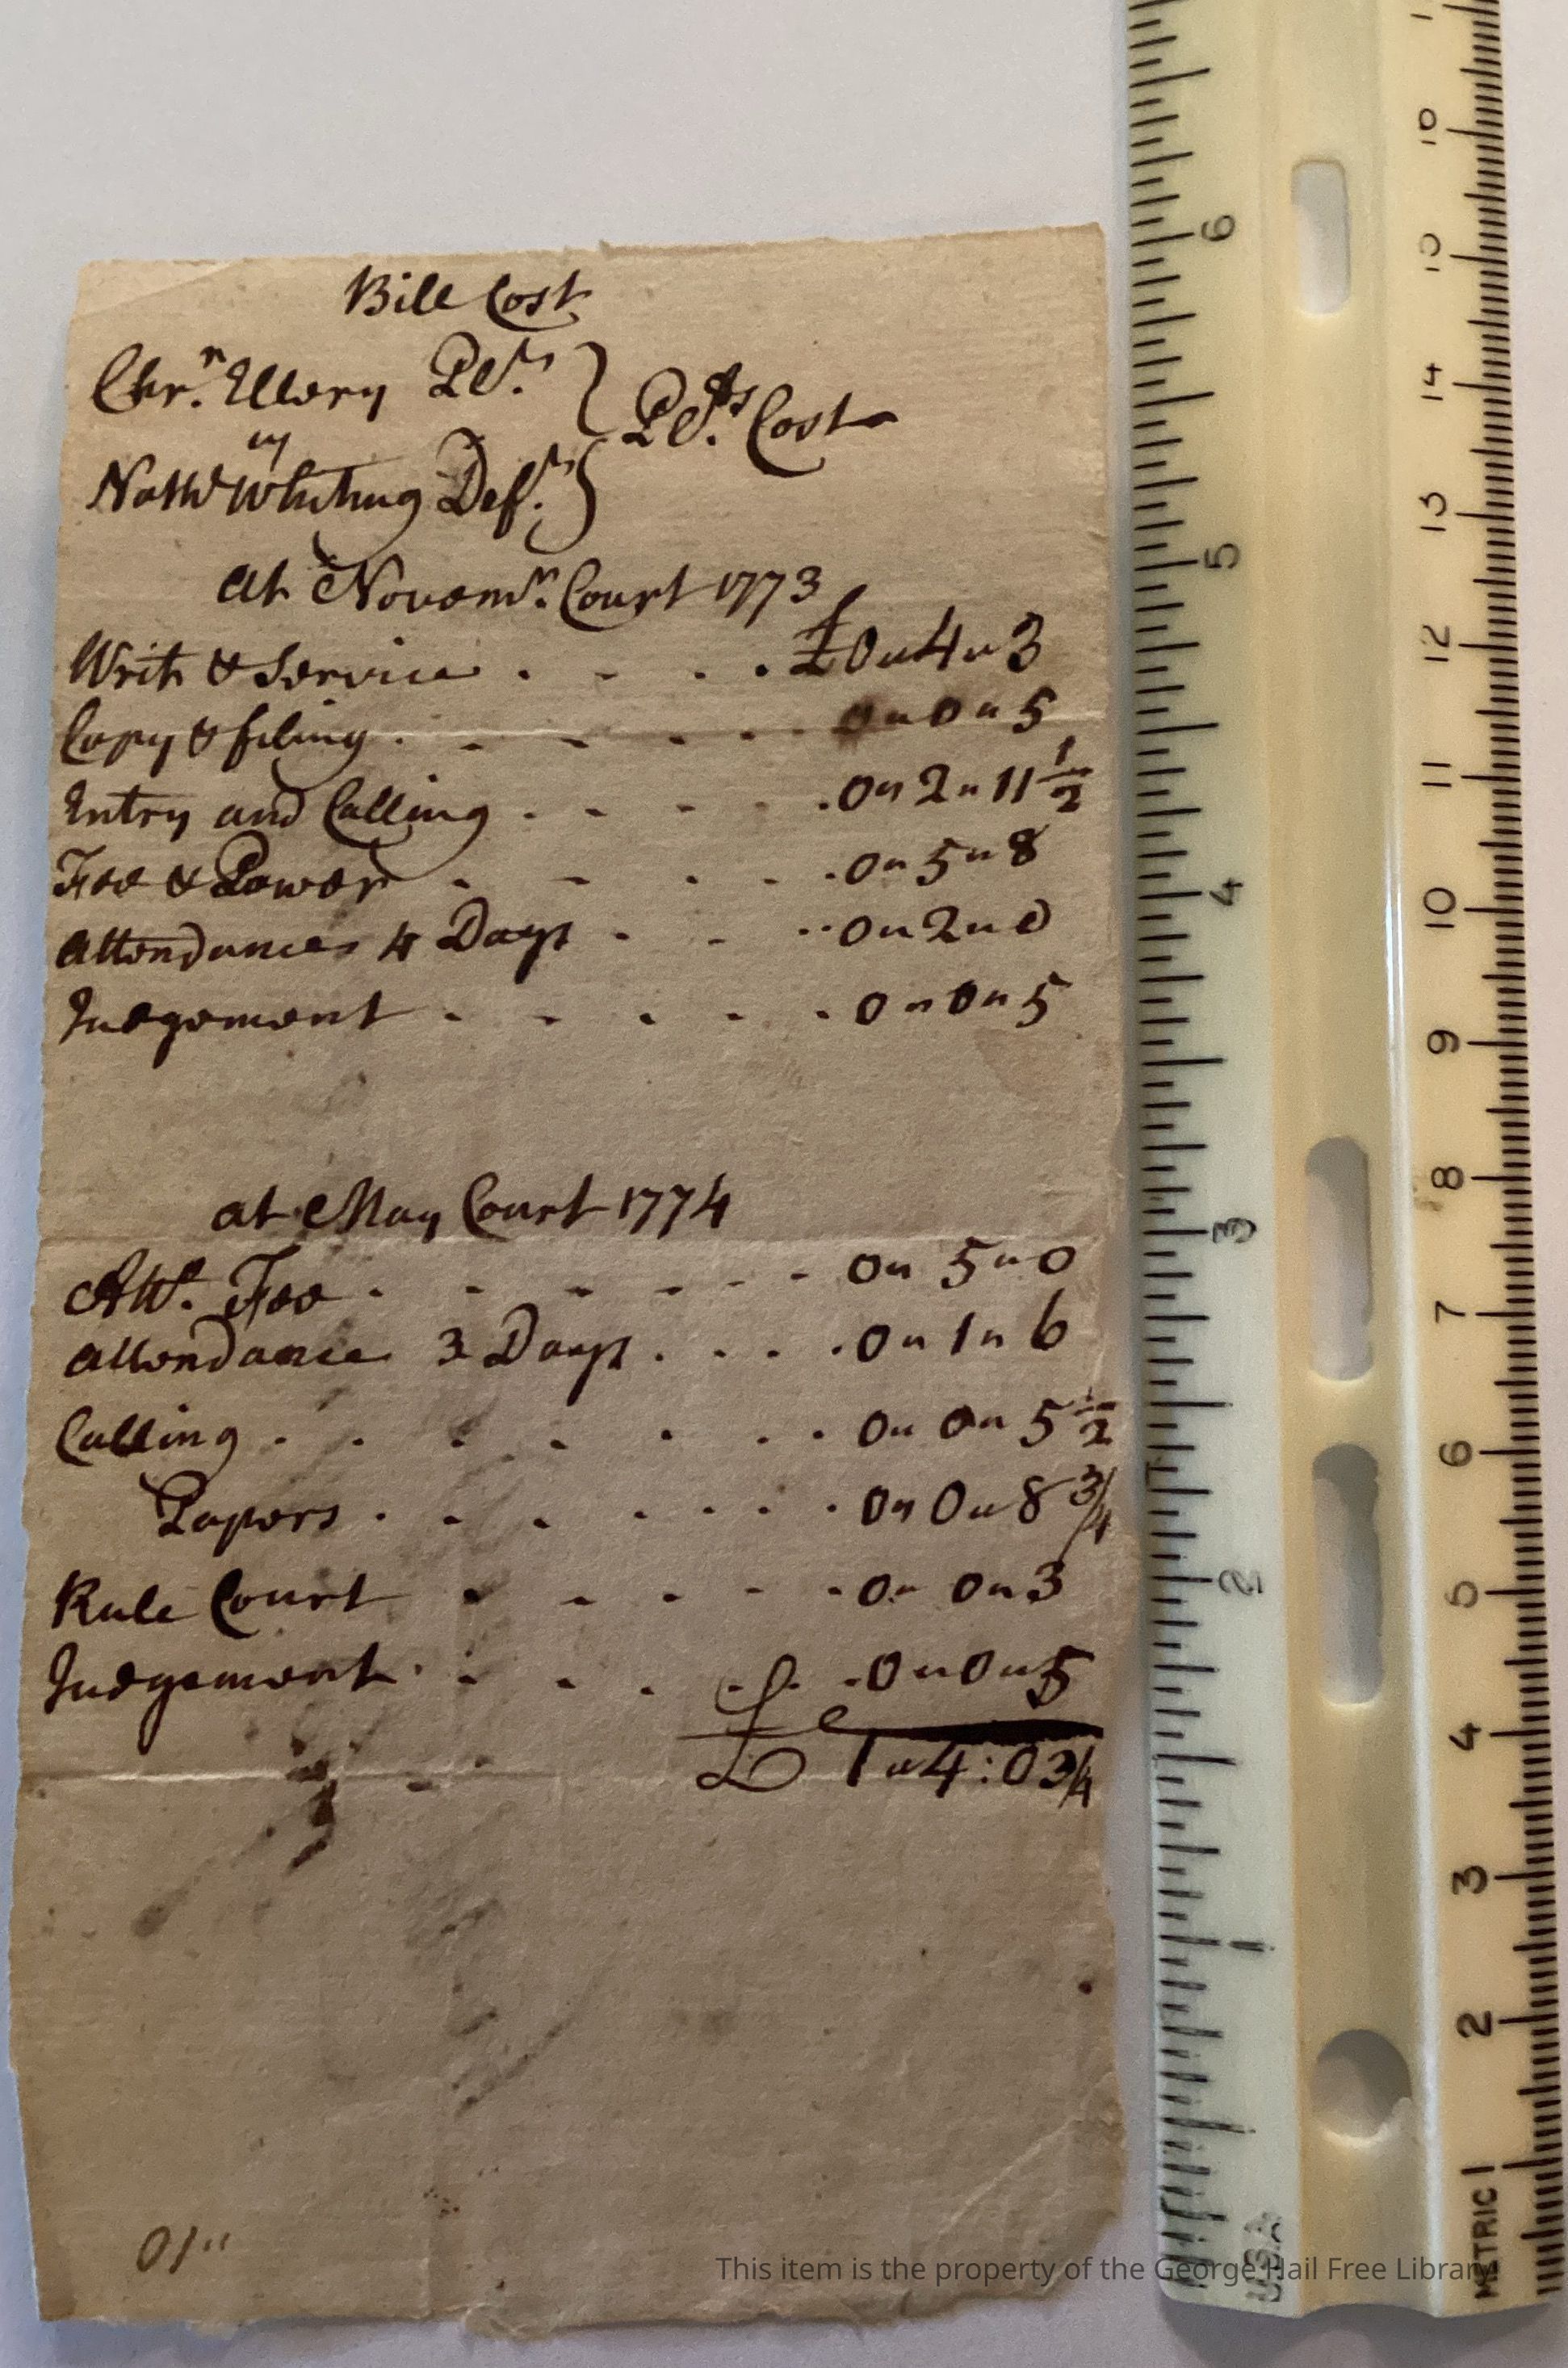 Bill Cost
Chr.ⁿ Ellery Pl.ᵗ } Pl.ᵗˢ Cost
vs
Nathˡ Whiting Def.ᵗ }
at Novemʳ. Court 1773
Writ & Service . - . . £0"4"3
Copy & filing . - - - . . 0"0"5
Entry and Calling . - - - . 0"2"11 1/2
Fee & Power - - - - . 0"5"8
Attendance 4 Days - - . . 0"2"0
Judgement - - - - . 0"0"5
at May Court 1774
Attʸ. Fee . - - - - - 0"5"0
Attendance 3 Days . . . . 0"1"6
Calling . . . . . . . 0"0"5 1/2
Papers . . . . . . . 0"0"8 3/4
Rule Court - - - - - 0"0"3
Judgement . - - . . . . 0"0"5
£ 1"4:03/4
01"
This item is the property of the George Hail Free Library
7
10
15
14
13
12
11
10
9
8
7
6
5
4
3
2
METRIC 1
6
5
4
3
2
1
U.S.A.